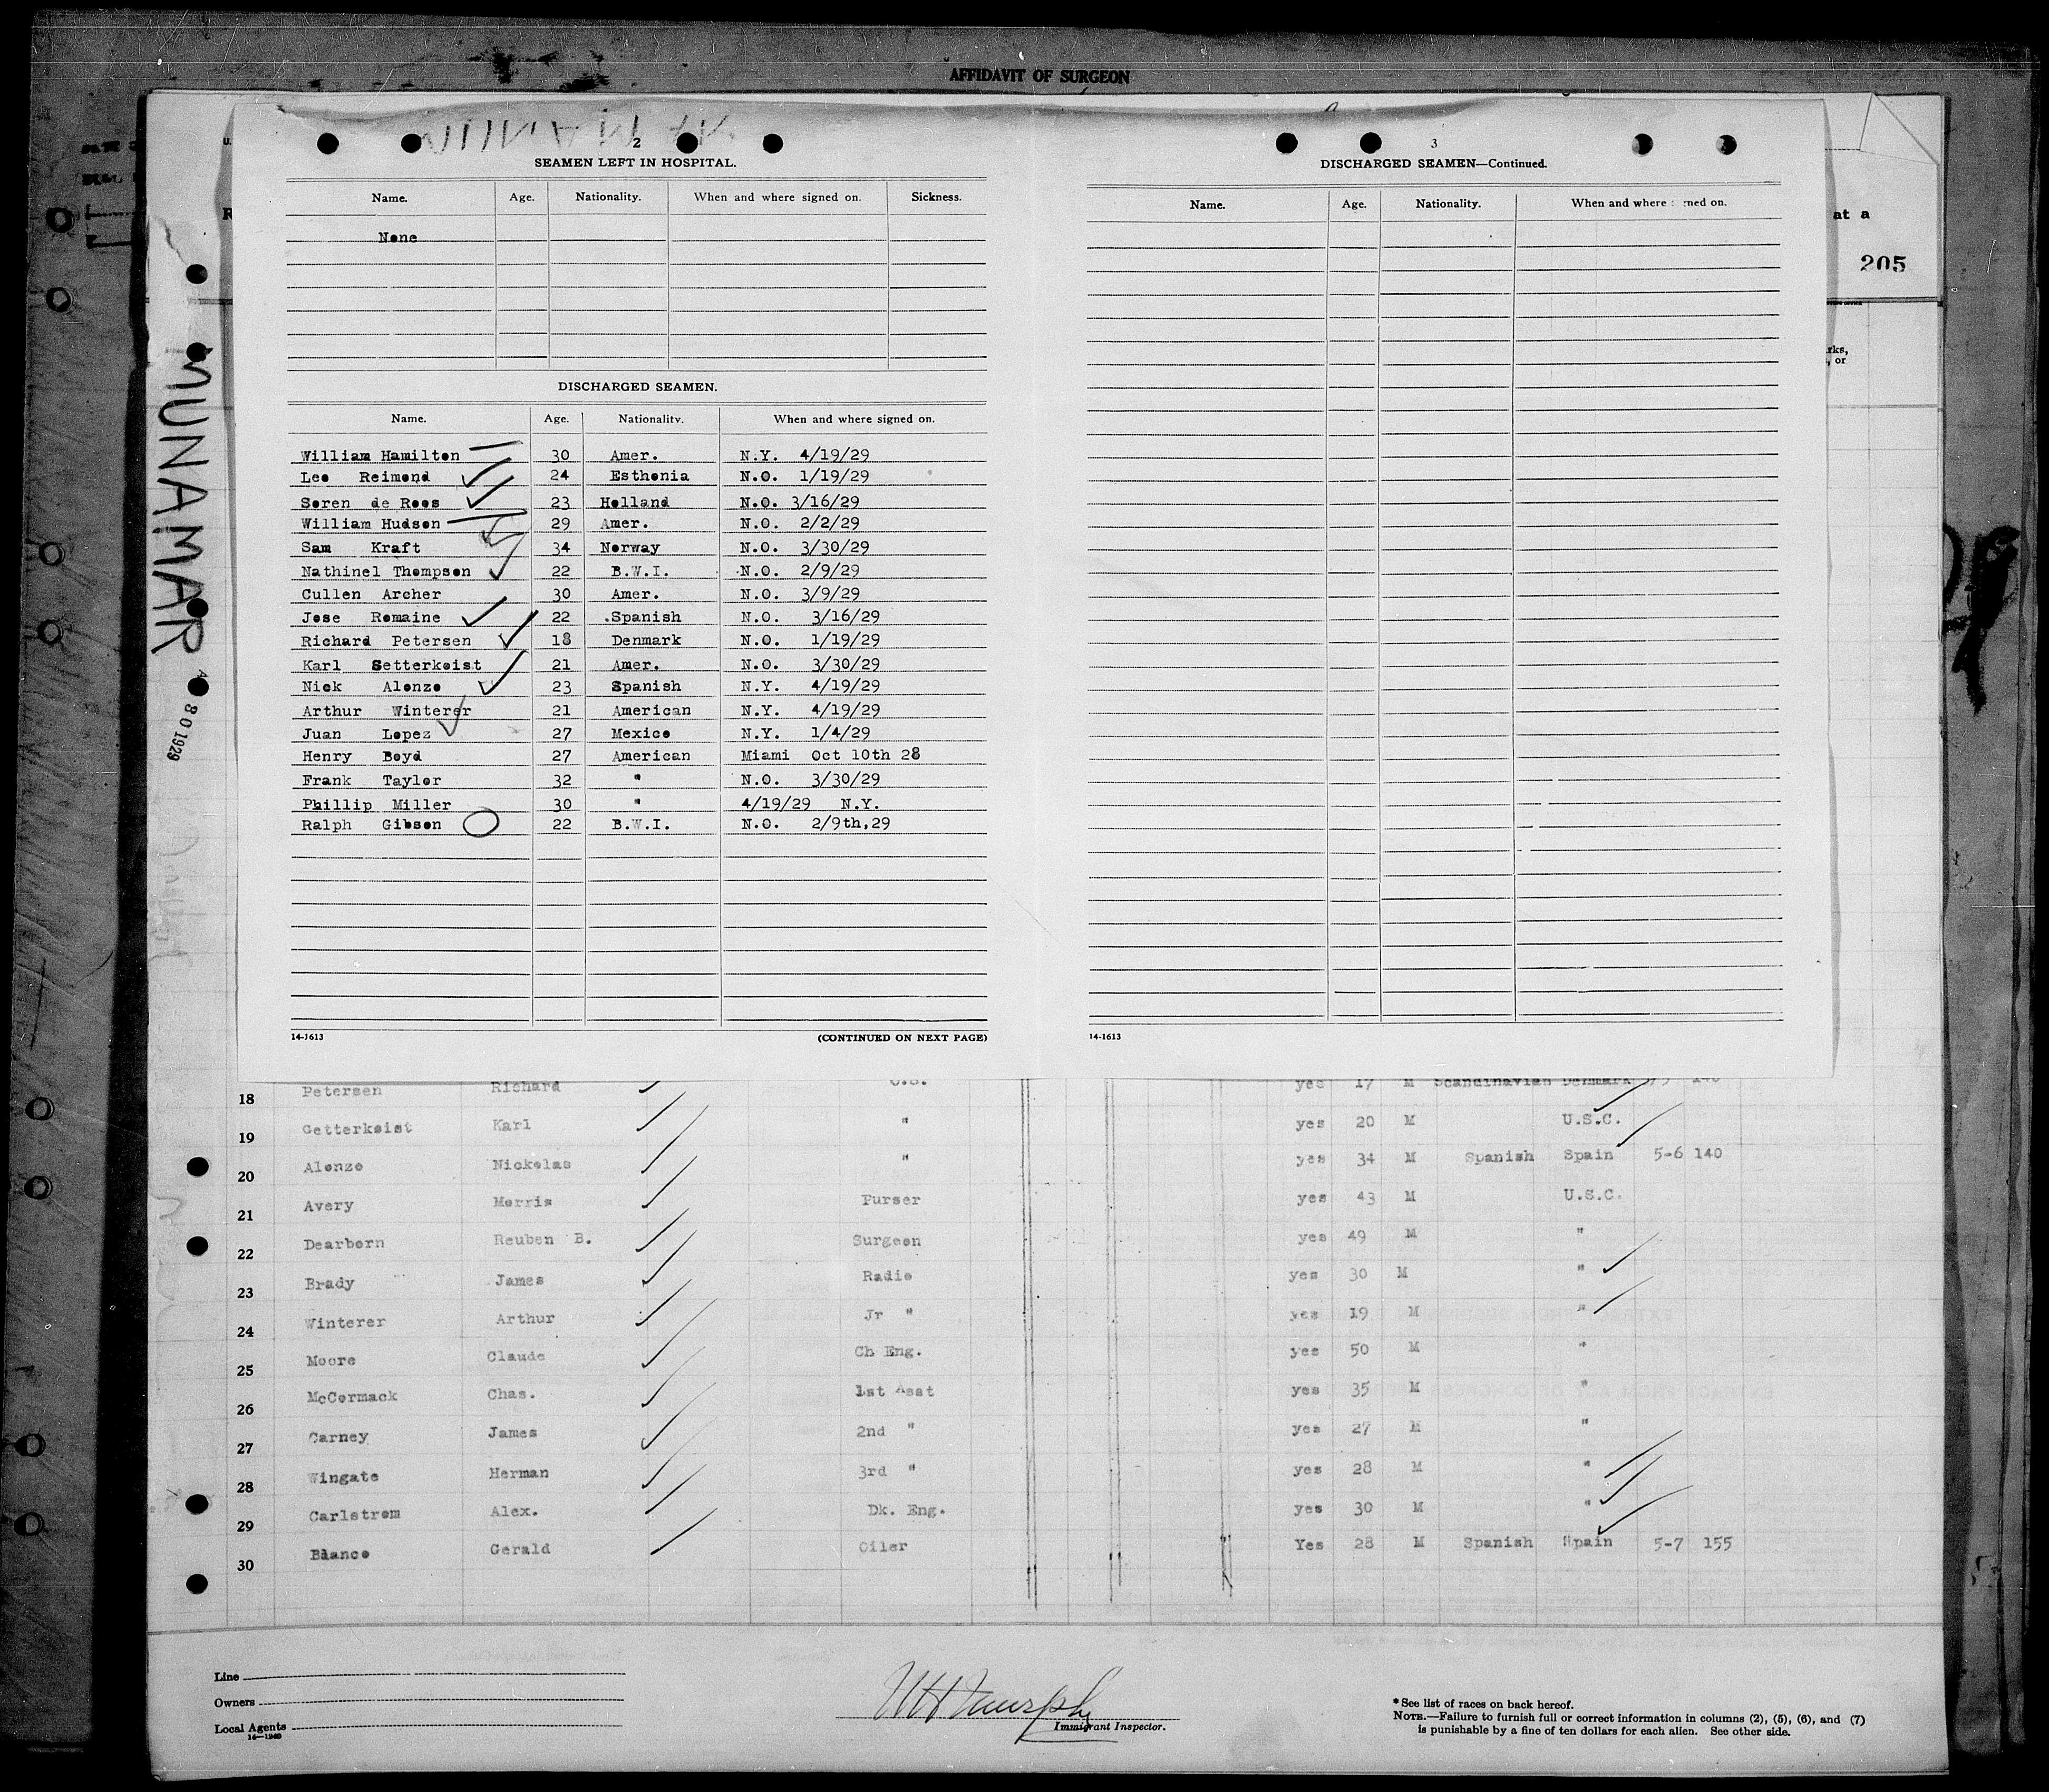 AFFIDAVIT OF SURGEON
2
SEAMEN LEFT IN HOSPITAL.
Name. Age. Nationality. When and where signed on. Sickness.
None
DISCHARGED SEAMEN.
Name. Age. Nationality. When and where signed on.
William Hamilton 30 Amer. N.Y. 4/19/29
Leo Reimond 24 Esthonia N.O. 1/19/29
Soren de Roos 23 Holland N.O. 3/16/29
William Hudson 29 Amer. N.O. 2/2/29
Sam Kraft 34 Norway N.O. 3/30/29
Nathinel Thompson 22 B.W.I. N.O. 2/9/29
Cullen Archer 30 Amer. N.O. 3/9/29
Jose Romaine 22 Spanish N.O. 3/16/29
Richard Petersen 18 Denmark N.O. 1/19/29
Karl Setterkoist 21 Amer. N.O. 3/30/29
Nick Alonzo 23 Spanish N.Y. 4/19/29
Arthur Winterer 21 American N.Y. 4/19/29
Juan Lopez 27 Mexico N.Y. 1/4/29
Henry Boyd 27 American Miami Oct 10th 28
Frank Taylor 32 " N.O. 3/30/29
Phillip Miller 30 " 4/19/29 N.Y.
Ralph Gibson 22 B.W.I. N.O. 2/9th,29
14-1613 (CONTINUED ON NEXT PAGE)
3
DISCHARGED SEAMEN—Continued.
Name. Age. Nationality. When and where signed on.
14-1613
at a
205
rks,
, or
MUNAMAR
8 0 1929
18 Petersen Richard yes 17 M Scandinavian Denmark
19 Getterkoist Karl " yes 20 M U.S.C.
20 Alonzo Nickolas " yes 34 M Spanish Spain 5-6 140
21 Avery Morris Purser yes 43 M U.S.C.
22 Dearborn Reuben B. Surgeon yes 49 M "
23 Brady James Radio yes 30 M "
24 Winterer Arthur Jr " yes 19 M "
25 Moore Claude Ch Eng. yes 50 M "
26 McCormack Chas. 1st Asst yes 35 M "
27 Carney James 2nd " yes 27 M "
28 Wingate Herman 3rd " yes 28 M "
29 Carlstrom Alex. Dk. Eng. yes 30 M "
30 Blanco Gerald Oiler Yes 28 M Spanish Spain 5-7 155
Line
Owners
Local Agents
14—1240
W H Murphy
Immigrant Inspector.
* See list of races on back hereof.
NOTE.—Failure to furnish full or correct information in columns (2), (5), (6), and (7)
is punishable by a fine of ten dollars for each alien. See other side.